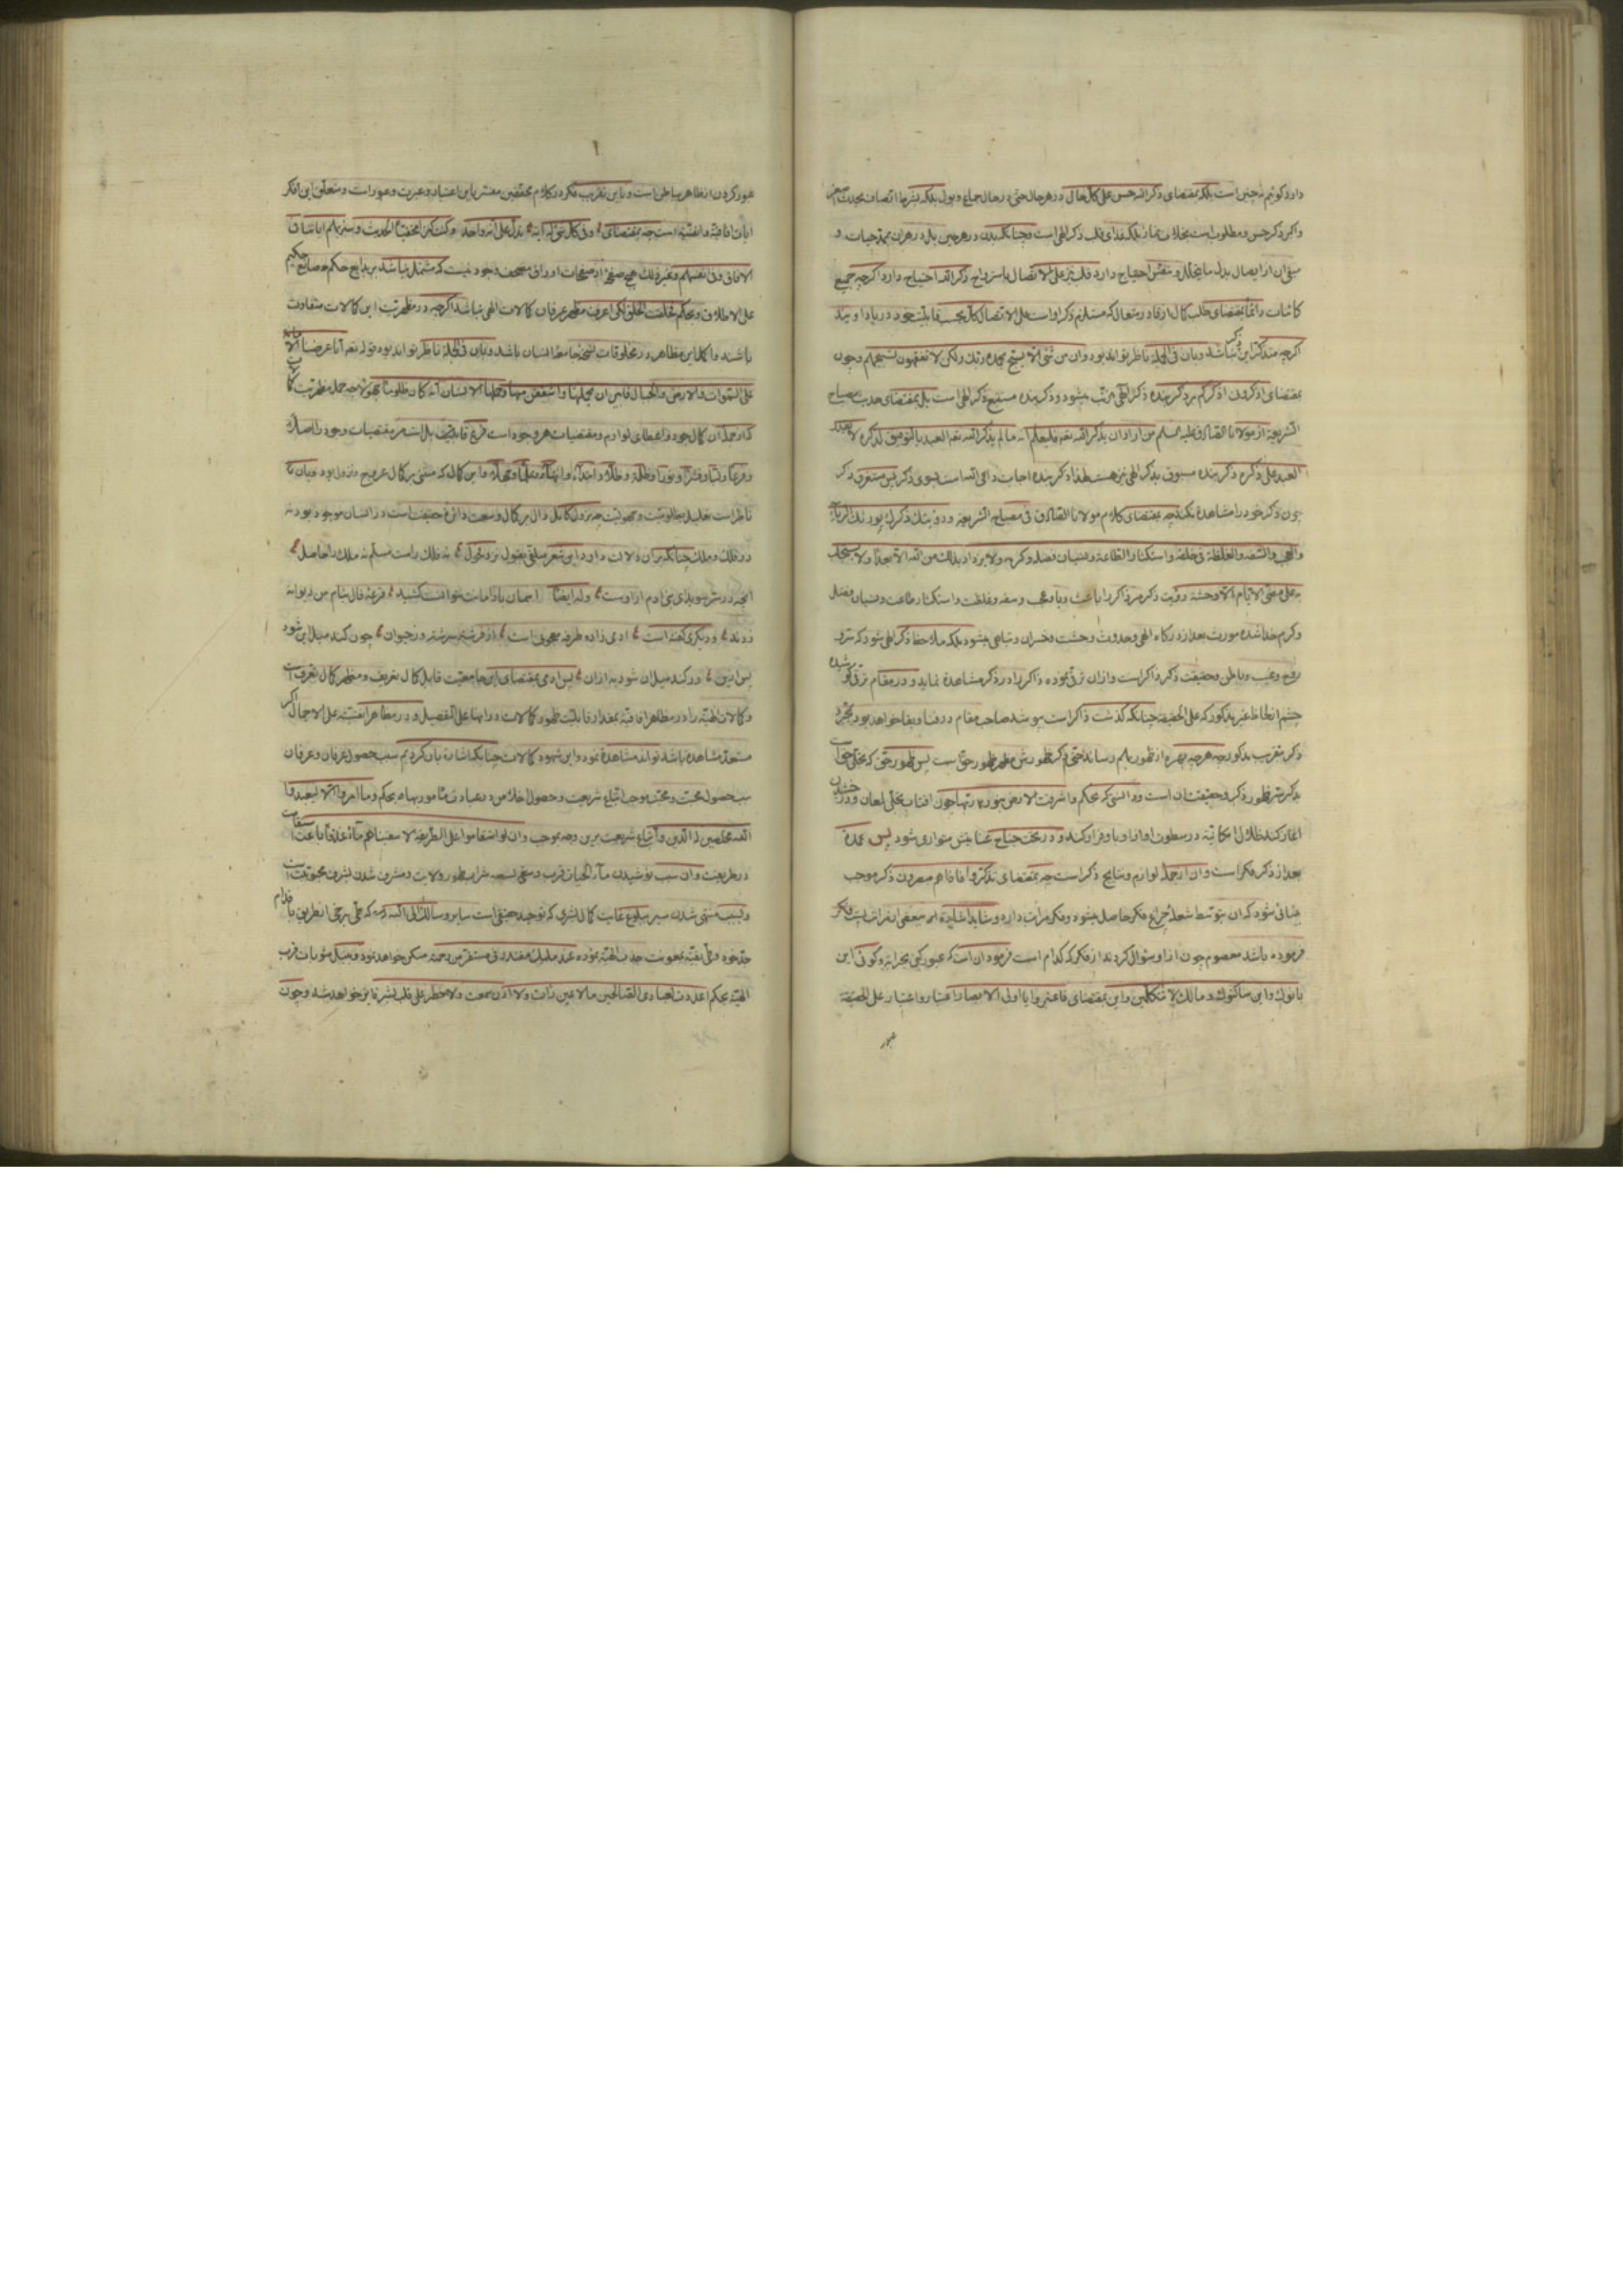 دارد کوئیم نه چنین است بلکه بمقتضای ذکر الله حسن علی کل حال در هر حال حتی در حال جماع و بول بلکه بشرط اتصاف بحدث
واکبر ذکر حسن و مطلوب است بخلاف نماز بلکه غذای قلب ذکر الهی است و چنانکه بدن در هر حین بل در هر آن بممد حیات و
مبقی آن از ایصال بدل ما یتحلل و تنفس احتیاج دارد قلب نیز علی الاتصال باستر واح ذکر الله احتیاج دارد اگرچه جمیع
کائنات دائما بمقتضای طلب کمال از قادر متعال که مستلزم ذکر اواست علی الاتصال کل بحسب قابلیت خود در یاد او یند
اگرچه متذکر این ذکر نباشد و بآن فی الجمله ناظر تواند بود وان من شیء الا یسبح بحمده ولکن لا تفقهون تسبیحهم وچون
بمقتضای اذکرونی اذکرکم بر ذکر بنده ذکر الهی مرتب میشود و ذکر بنده مستتبع ذکر الهی است بل بمقتضای حدیث مصباح
الشریعة از مولانا الصادق علیه السلم من اراد ان یذکر الله تعه فلیعلم انه ما لم یذکر الله تعه العبد بالتوفیق لذکره لا یقدر
العبد علی ذکره ذکر بنده مسبوق بذکر الهی نیز هست لهذا ذکر بنده اجابت داعی الله است بسوی ذکر پس مستغرق ذکر
چون ذکر خود را مشاهده نکند چه بمقتضای کلام مولانا الصادق فی مصباح الشریعه ورؤیتک ذکرک یورثک الریاء
والعجب والسفه والغلظة فی خلقه واستکثار الطاعة ونسیان فضله وکرمه ولا یزداد بذلک من الله الا بعدا ولا یستجلب
به علی مضی الایام الا وحشة رؤیت ذکر مر ذاکر را باعث ریا و عجب و سفه و غلظت و استکثار طاعت و نسیان فضل
وکرم خدا شده مورث بعد از درکاه الهی و حدوث وحشت و خسران و تباهی میشود بلکه ملاحظ ذکر الهی شود که سر و
روح و غیب و باطن و حقیقت ذکر ذاکر است وازان ترقی نموده ذاکر را در ذکر مشاهده نماید و در مقام ترقی کوشیده
چشم از لحاظ غیر مذکور که علی الحقیقه چنانکه کذشت ذاکر است پوشد صاحب مقام در فنا و بقا خواهد بود بمجرد
ذکر بتقرب مذکور چه هرچه بهره از ظهور بهم رساند حتی ذکر ظهورش مظهر ظهور حق است پس ظهور حق که تجلی حق است
بذکر سر ظهور ذکر و حقیقت آن است و دانستی که بحکم واشرقت الارض بنور ربها چون افتاب تجلی لمعان و درخشیدن
اغاز کند ظلال امکانیة در سطوت انوار او با وفرار کند و در تحت جناح غنایش متواری شود پس عمده
بعد از ذکر فکر است وان از جمله لوازم و نتایج ذکر است چه بمقتضای تذکروا فاذا هم مبصرون ذکر موجب
بینائی شود که ان بتوسط شعله چراغ فکر حاصل میشود و فکر مراتب دارد و شاید اشاره به بعضی از مراتب فکر
فرموده باشد معصوم چون از او سؤال کردند از فکر که کدام است فرمود آن است که عبور کنی بخرابه و کوئی این
بانوک واین ساکنوک و ما لک لا تتکلمین واین بمقتضای فاعتبروا یا اولی الابصار اعتبار و اعتبار علی الحقیقة
عبور
عبور کردن از ظاهر بباطن است و باین تقریب فکر در کلام محققین مفسر باین اعتبار و عبرت و عبور است و متعلق این فکر
آیات افاقیة و انفسیة است چه بمقتضای وفی کل شیء له آیة تدل علی انه واحد و کنت کنزا مخفیا الحدیث و سنریهم ایاتنا فی
الافاق و فی انفسهم وغیر ذلک هیچ صفحه از صفحات اوراق مصحف وجود نیست که مشتمل نباشد بر بدایع حکم و صنایع حکیم
علی الاطلاق و بحکم فخلقت الخلق لکی اعرف مظهر عرفان کمالات الهی نباشد اگرچه در مظهریت این کمالات متفاوت
باشند واکمل این مظاهر در مخلوقات نسخه جامعه انسان باشد و باین فی الجمله ناظر تواند بود قوله تعه انا عرضنا الامانة
علی السموات والارض والجبال فابین ان یحملنها واشفقن منها وحملها الانسان انه کان ظلوما جهولا چه حمل مظهریت کمالات
که از جمله ان کمال جود و اعطای لوازم و مقتضیات هر وجود است فرع قابلیت تلبس است مر مقتضیات وجود را اصلا
وفرعا و لبا و قشرا و نورا و ظلمة و ظلا و ابتداء و انتهاء و علما و جهلا و این کمال که مبتنی بر کمال عروج و نزول بود و بآن نیز
ناظر است تعلیل بظلومیت و جهولیت چه نزول کامل دال بر کمال و سعت دائره حقیقت است در انسان موجود بود نه
در فلک و ملک چنانکه بران دلالت دارد این شعر سلقی بقول نزد غزل نه فلک راست مسلم نه ملک را حاصل
انچه در سر سویدای بنی ادم ازاوست وله ایضا اسمان بار امانت نتوانست کشید قرعه فال بنام من دیوانه
زدند و دیکری کفته است ادمی زاده طرفه معجونی است از فرشته سرشته وز حیوان چون کند میل این شود
پس ازین ور کند میل آن شود به ازان پس ادمی بمقتضای این جامعیت قابل کمال تعریف و مظهر کمال تعرف است
و کمالات الهیّه را در مظاهر افاقیه بمقدار قابلیت ظهور کمالات در انها علی التفصیل و در مظاهر انفسیّه علی الاجمال اکر
مستعد مشاهده باشد تواند مشاهده نمود و این شهود کمالات چنانکه اشاره بان کردیم سبب حصول عرفان و عرفان
سبب حصول محبت و محبت موجب اتباع شریعت و حصول اخلاص در عبادت مأمور بها به بحکم وما امروا الا لیعبدوا
الله مخلصین له الدین و اتباع شریعت برین وجه بموجب وان لو استقاموا علی الطریقة لاسقیناهم ماء غدقا باعث استقامت
در طریقت وان سبب نوشیدن ماء الحیات قرب و سقی بسقیه شراب طهور ولایت و مشرف شدن بشرف محبوبیت است
وبسبب منتهی شدن سیر ببلوغ غایت کمال بشری که توحید حقیقی است سایر و سالک الی الله که طی برخی از طریق باقدام
جد خود و طی بقیه بمعونت جذب الهیة نموده عند ملیک مقتدر فی مستقر من رحمته متمکن خواهد بود و بنیل مثوبات قرب
الهیّه بحکم اعددت لعبادی الصالحین ما لا عین رأت ولا اذن سمعت ولا خطر علی قلب بشر فایز خواهد شد و چون